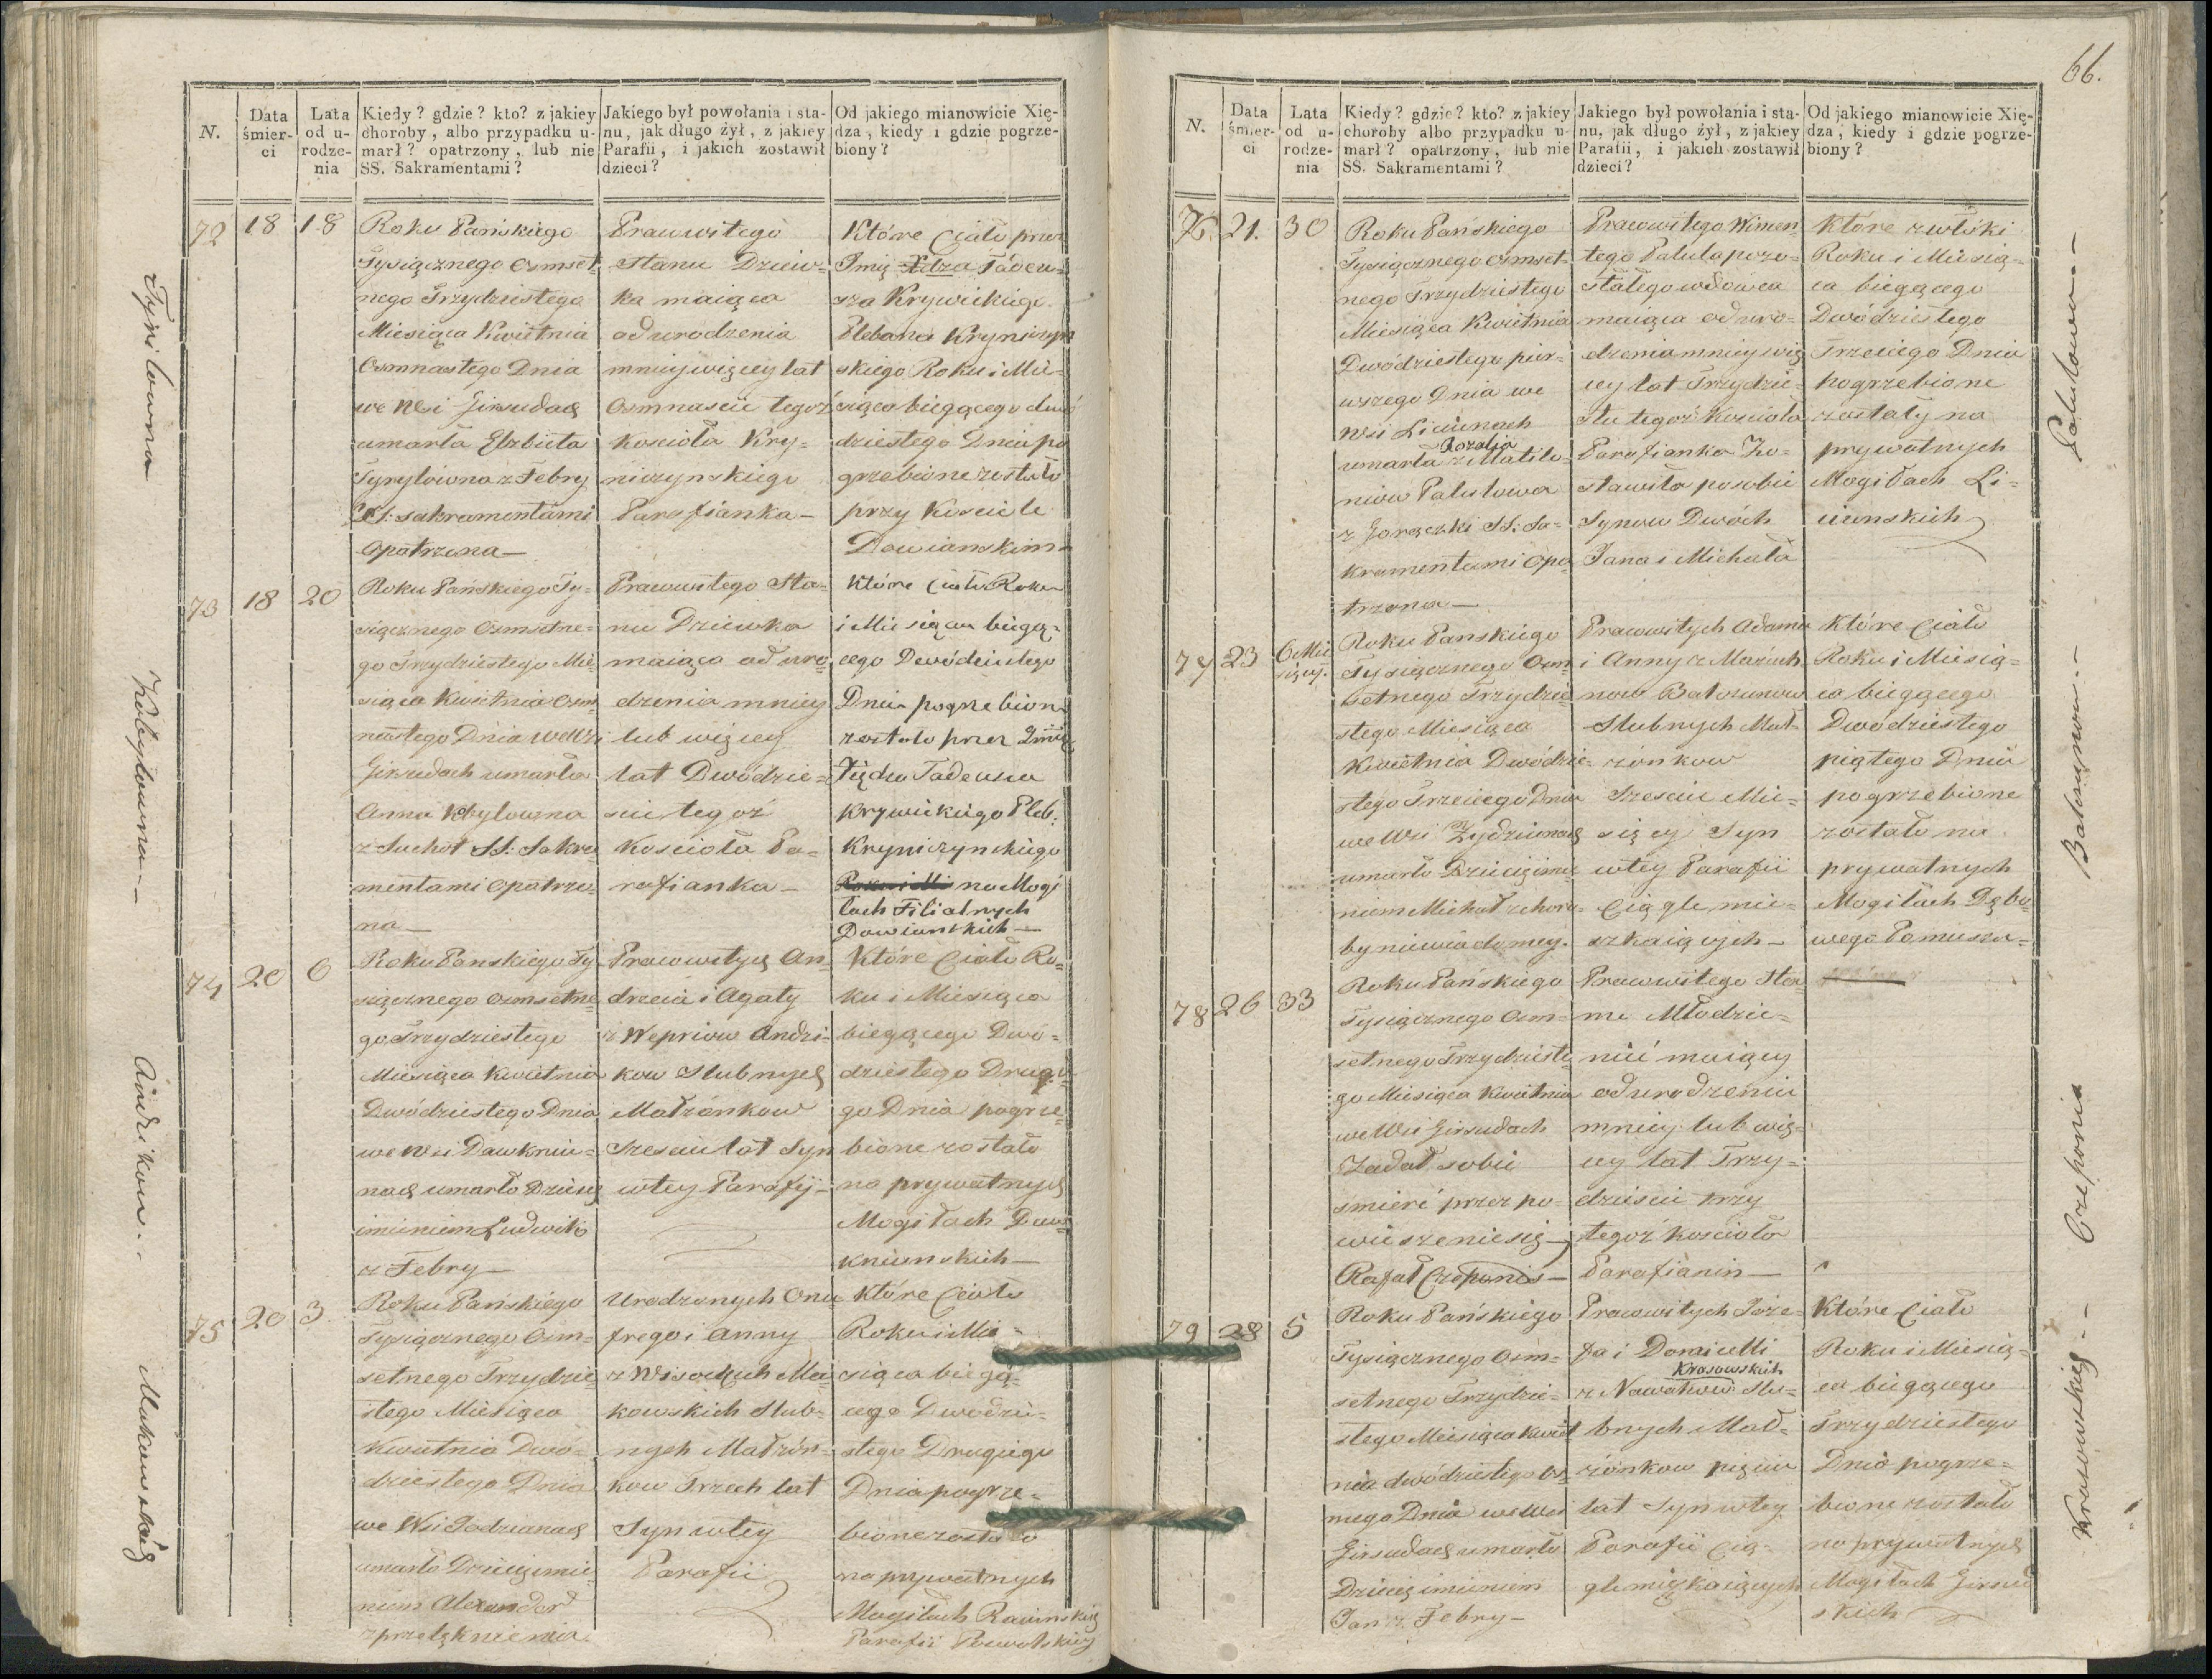 66.
N.
Data śmier-ci
Lata od u-rodze-nia
Kiedy? gdzie? kto? z jakiey
choroby, albo przypadku u-
marł? opatrzony, lub nie
SS. Sakramentami?
Jakiego był powołania i sta-
nu, jak długo żył, z jakiey
Parafii, i jakich zostawił
dzieci?
Od jakiego mianowicie Xię-
dza, kiedy i gdzie pogrze-
biony?
72
18
18
Roku Pańskiego
Tysiącznego osmset-
nego Trzydziestego
Miesiąca Kwietnia
Osmnastego Dnia
we Wsi Girsudach
umarła Elzbieta
z Febry
SS: sakramentami
opatrzona—
Prawwitego
stanu Dziew-
ka maiąca
od urodzenia
mniej więcey lat
Osmnascie tegoż
Kościoła Kry-
niczynskiego
Parafianka—
Które Ciało przez
Imię Xdza Tadeu-
sza Krywickiego
Plebana Kryniczyn
skiego Roku i Mie-
siąca biegącego dwó
dziestego Dnia po
grzebione zostało
przy Kosciele
Dowianskim
73
18
20
Roku Pańskiego Ty-
siącznego Osmsetne-
go Trzydziestego Mie
siąca Kwietnia Osm
nastego Dnia we Wsi
Girsudach umarła
Anna Kobylowna
z Suchot SS: Sakra
mentami opatrzo-
na—
Prawwitego Sta-
nu Dziewka
maiąca od uro
dzenia mniey
lub więcey
lat Dwódzie-
scie tegoż
Kościoła Pa-
rafianka—
Które Ciało Roku
i Miesiąca biegą-
cego Dwódziestego
Dnia pogrzebion
zostało przez Imię
Xiędza Tadeusza
Krywickiego Pleb:
Kryniczynskiego
na Mogi
łach Filialnych
Dowianskich—
74
20
6
Roku Panskiego Ty
siącznego osmsetne
go Trzydziestego
Miesiąca Kwietnia
Dwódziestego Dnia
we Wsi Dawkniu-
nach umarło Dziecię
imieniem Ludwik
z Febry—
Prawwitych An-
drzeia i Agaty
z Wepriow Andzi-
kow Slubnych
Małżonkow
Szesciu lat Syn
wtey Parafij—
Które Ciało Ro-
ku i Miesiąca
biegącego Dwó-
dziestego Drugi-
go Dnia pogrze-
bione zostało
na prywatnych
Mogiłach Daw-
kniunskich—
75
20
3
Roku Pańskiego
Tysiącznego Osm-
setnego Trzydzie-
stego Miesiąca
Kwietnia Dwó-
dziestego Dnia
we Wsi Podzianach
umarło Dziecię imie
niem Alexander
z przelęknienia.
Urodzonych Onu
frego i Anny
z Wisockich Ma-
kowskich Slub-
nych Małżon-
kow Trzech lat
Syn wtey
Parafii
Które Ciało
Roku i Mie-
siąca biegą-
cego Dwódzie-
stego Drugiego
Dnia pogrze-
bione zostało
na prywatnych
Mogiłach
Parafii
Kobylowna—
Andzikow.
Makowskich
N.
Data śmier-ci
Lata od u-rodze-nia
Kiedy? gdzie? kto? z jakiey
choroby albo przypadku u-
marł? opatrzony, lub nie
SS. Sakramentami?
Jakiego był powołania i sta-
nu, jak długo żył, z jakiey
Parafii, i jakich zostawił
dzieci?
Od jakiego mianowicie Xię-
dza, kiedy i gdzie pogrze-
biony?
76.
21.
30
Roku Pańskiego
Tysiącznego osmset-
nego Trzydziestego
Miesiąca Kwietnia
Dwódziestego pier-
wszego Dnia we
Wsi Liciunach
Rozalia
umarła z Matilo-
niow Palulowa
z Gorączki SS: Sa-
kramentami opa
trzona—
Prawwitego Wincen
tego Palula pozo-
stałego wdowca
maiąca od uro-
dzenia mniey wię
cey lat Trzydzie-
stu tegoż Kościoła
Parafianka Zo-
stawiła po sobie
Synow Dwóch
Jana i Michała
Które zwłoki
Roku i Miesią-
ca biegącego
Dwódziestego
Trzeciego Dnia
pogrzebione
zostały na
prywatnych
Mogiłach Li-
ciunskich
77
23
6 Mie
sięcy.
Roku Panskiego
Tysiącznego Osm
setnego Trzydzie
stego Miesiąca
Kwietnia Dwódzie-
stego Trzeciego Dnia
we Wsi Zydziunach
umarło Dziecię imie
niem Michał z choro-
by niewiadomey.
Prawwitych Adama
i Anny z Maciuch
now Batszunow
Slubnych Mał-
żonkow
Szesciu Mie-
sięcy Syn
wtey Parafii
Ciągle mie-
szkaiących—
Które Ciało
Roku i Miesią-
ca biegącego
Dwódziestego
piątego Dnia
pogrzebione
zostało na
prywatnych
Mogiłach Dębo-
wego Pomusza-
78
26
33
Roku Pańskiego
Tysiącznego Osm-
setnego Trzydzieste
go Miesiąca Kwietnia
we Wsi Girsudach
Zadał sobie
smierć przez po-
wieszenie się—
Rafał Czeponis—
Prawwitego Sta-
nu Młodzie-
niec maiący
od urodzenia
mniey lub wię-
cey lat Trzy-
dziescie trzy
tegoż kościoła
Parafianin—
79
28
5
Roku Pańskiego
Tysiącznego Osm-
setnego Trzydzie-
stego Miesiąca Kwiet
nia dwódziestego Os-
mego Dnia we Wsi
Girsudach umarło
Dziecię imieniem
Jan z Febry—
Prawwitych Józe-
fa i Doroty
Krasowskich
z Nowakow Slu-
bnych Mał-
żonkow pięciu
lat Syn wtey
Parafii Cią-
gle mięszkaiących
Które Ciało
Roku i Miesią-
ca biegącego
Trzydziestego
Dnia pogrze-
bione zostało
na prywatnych
Mogiłach Girsud
skich
Palulowa—
Czeponia
Krasowskich—